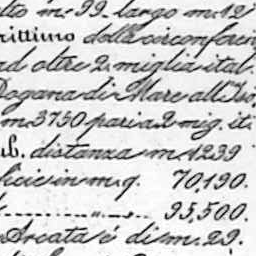 alto m. 99. largo m. 12
rittimo della circonferen
ad oltre 2. miglia ital.
Dogana di Mare all'Iso
m. 3750 pari a 2 mig. it.
ub. distanza m. 1239
ficie in m. q. 70,190.
" 95,500.
Arcata é di m. 29.